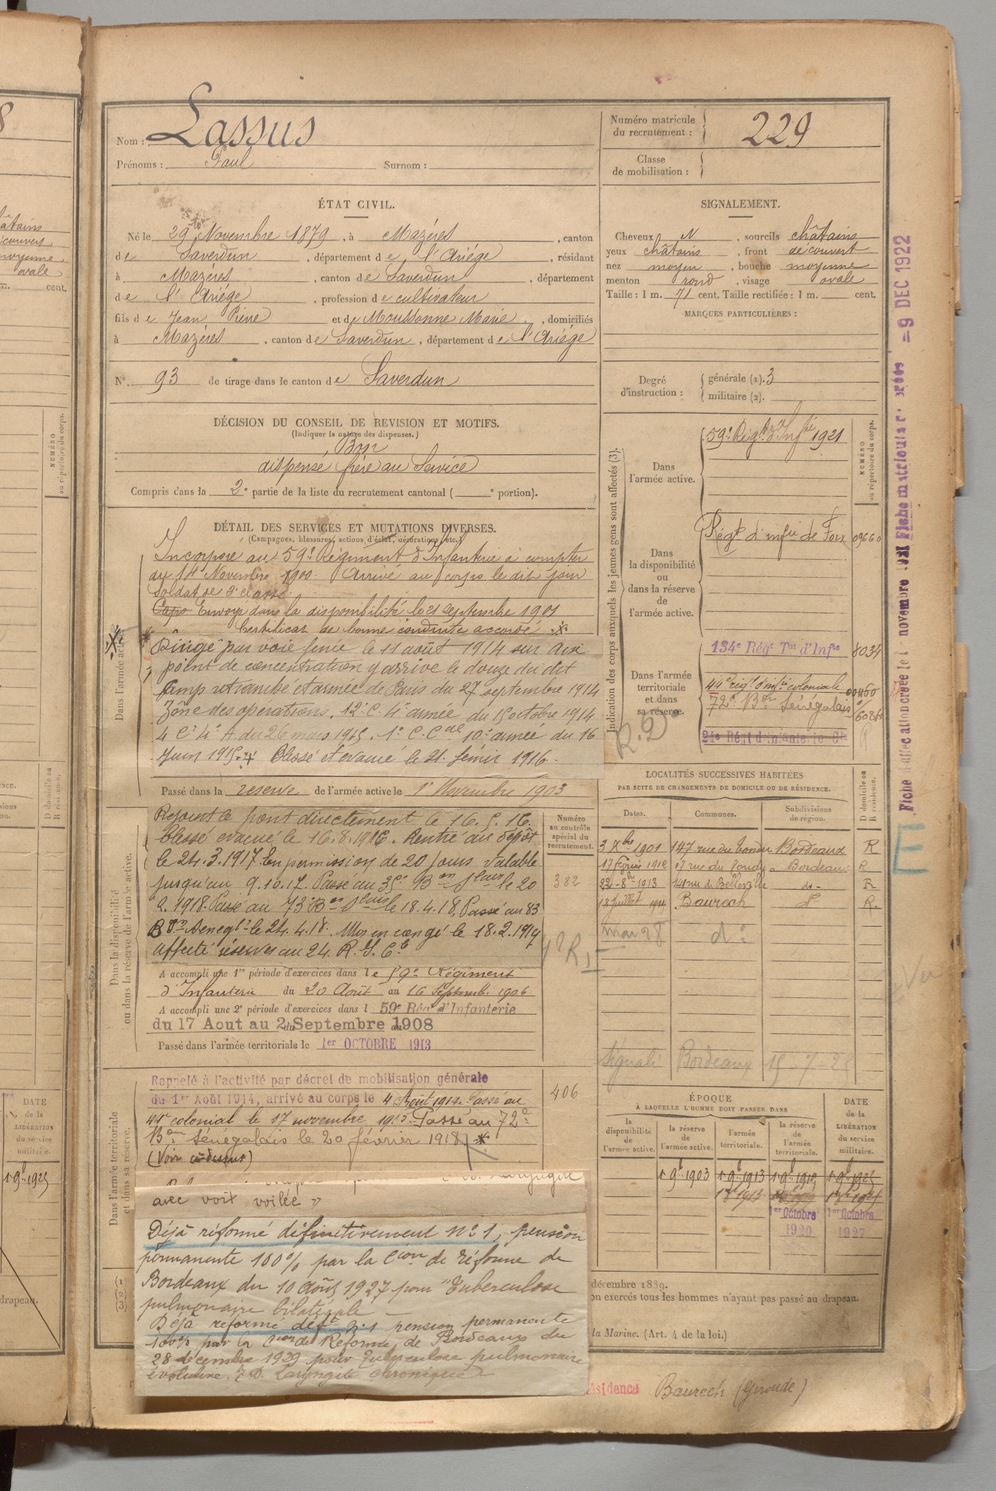 Nom : Lassus
Prénoms : Paul Surnom :
Numéro matricule du recrutement : 229
Classe de mobilisation :
ÉTAT CIVIL.
Né le 29 Novembre 1879, à Mazères, canton
de Saverdun, département de l'Ariège, résidant
à Mazères, canton de Saverdun, département
de l'Ariège, profession de cultivateur
fils de Jean Pierre et de Moussonne Marie, domiciliés
à Mazères, canton de Saverdun, département de l'Ariège
N° 93 de tirage dans le canton de Saverdun
SIGNALEMENT.
Cheveux N, sourcils châtains
yeux châtains, front découvert
nez moyen, bouche moyenne
menton rond, visage ovale
Taille : 1 m. 71 cent. Taille rectifiée : 1 m. cent.
MARQUES PARTICULIÈRES :
Degré d'instruction : générale (1). 3
militaire (2).
DÉCISION DU CONSEIL DE REVISION ET MOTIFS.
(Indiquer la nature des dispenses.)
Bon
dispensé frère au Service
Compris dans la 2e partie de la liste du recrutement cantonal ( e portion).
DÉTAIL DES SERVICES ET MUTATIONS DIVERSES.
(Campagnes, blessures, actions d'éclat, décorations, etc.)
Dans l'armée active.
Incorporé au 59e Régiment d'Infanterie à compter
du 14 Novembre 1900. Arrivé au corps le dit jour
soldat de 2e classe
Envoyé dans la disponibilité le 21 Septembre 1901
Certificat de bonne conduite accordé
Dirigé par voie ferrée le 11 août 1914 sur
point de concentration y arrive le douze du dit
Camp retranché et armée de Paris du 27 septembre 1914
Zône des opérations. 12e C. 4e armée du 15 octobre 1914
4 C. 4e A du 26 mars 1915. 1e C. Cal 10e armée du 16
Juin 1915. Blessé et évacué le 21. 1916.
Passé dans la réserve de l'armée active le 1er Novembre 1903
Dans la disponibilité ou dans la réserve de l'armée active.
Rejoint le front directement le 16. 5. 16.
Blessé évacué le 16.8.1916. Rentré au dépôt
le 24.3.1917. En permission de 20 jours valable
jusqu'au 9.10.17. Passé au 35e Bon le 20
2. 1918. Passé au 73e Bon le 18.4.18. Passé au 83
Bon Sénégs le 24.4.18. Mis en congé le 18.2.1919
affecté réserve au 24. R. I. C.
A accompli une 1re période d'exercices dans le 59e Régiment
d'Infanterie du 20 Août au 16 Septembre 1906
A accompli une 2e période d'exercices dans l 59e Rég d'Infanterie
du 17 Aout au 2 Septembre 1908
Passé dans l'armée territoriale le 1er OCTOBRE 1913
Numéro au contrôle spécial du recrutement.
382
406
Dans l'armée territoriale et dans sa réserve.
Rappelé à l'activité par décret de mobilisation générale
du 1er Août 1914, arrivé au corps le 4 Août 1914. Passé au
colonial le 17 novembre 1915. Passé au 72e
Bon Sénégalais le 20 février 1918
(Voir ci-dessus)
avec voix voilée »
Déjà réformé définitivement n° 1, pension
permanente 100% par la Cion de réforme de
Bordeaux du 10 Août 1927 pour "Tuberculose
pulmonaire bilatérale
Déjà réformé déft n° 1 pension permanente
100% par la Cion de Réforme de Bordeaux du
28 décembre 1929 pour Tuberculose pulmonaire
évolutive. Laryngite chronique
Indication des corps auxquels les jeunes gens sont affectés (3).
Dans l'armée active.
59e Régt d'Infie 1921
NUMÉRO au répertoire du corps.
Dans la disponibilité ou dans la réserve de l'armée active.
Régt d'infie de Foix
Dans l'armée territoriale et dans sa réserve.
134e Régt Ter d'Infie
8034
régt d'infie coloniale
72e Bon Sénégalais
LOCALITÉS SUCCESSIVES HABITÉES
PAR SUITE DE CHANGEMENTS DE DOMICILE OU DE RÉSIDENCE.
Dates. Communes. Subdivisions de région. D domicile ou R résidence.
3 Xbre 1901 147 rue du Bordeaux R
17 Février 1912 17 rue du Bordeaux R
1913 21 rue de do R
12 Juillet Baurech do R
mai 28 do
signalé Bordeaux
ÉPOQUE
À LAQUELLE L'HOMME DOIT PASSER DANS
la disponibilité de l'armée active. la réserve de l'armée active. l'armée territoriale. la réserve de l'armée territoriale.
DATE de la LIBÉRATION du service militaire.
1903 1913
1er Octobre 1920 1er Octobre 1927
décembre 1889.
on exercés tous les hommes n'ayant pas passé au drapeau.
la Marine. (Art. 4 de la loi.)
Résidence Baurech (Gironde)
= 9 DEC 1922